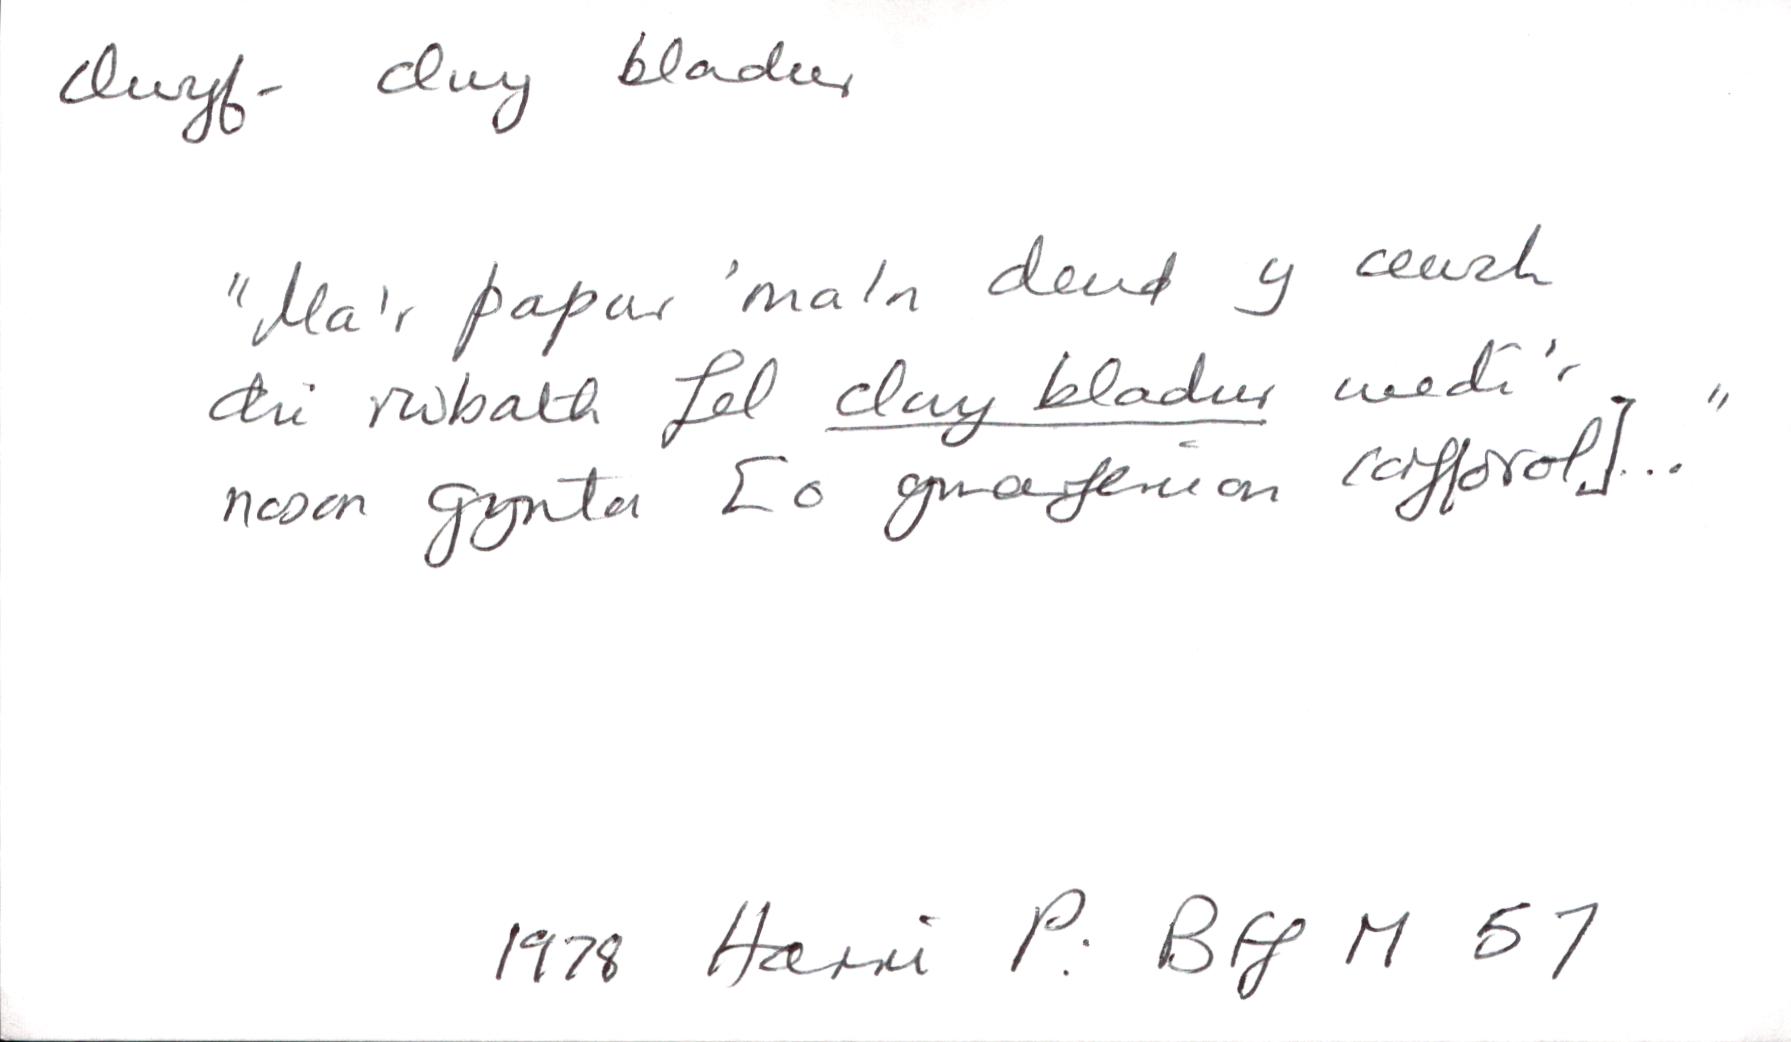 clwyf- clwy bladur
"Ma'r papur 'ma'n deud y cewch
chi rwbath fel clwy bladur wedi'r
noson gynta [o ymarferion corfforol]..."
1978 Harri P: B M 57